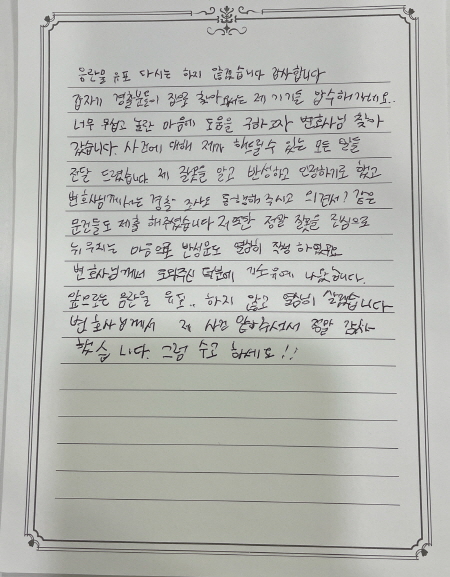 음란물 유포 다시는 하지 않겠습니다 감사합니다
갑자기 경찰분들이 집으로 찾아와서는 제 기기를 압수해가네요..
너무 무섭고 놀란 마음에 도움을 구하고자 변호사님 찾아
갔습니다. 사건에 대해 제가 해드릴수 있는 모든 말들
전달 드렸습니다 제 잘못을 알고 반성하고 인정하기로 했고
변호사님께서는 경찰 조사도 동행해 주시고 의견서? 같은
문건들도 제출 해주셨습니다 저또한 정말 잘못을 진심으로
뉘우치는 마음으로 반성문도 열심히 작성 하였고요
변호사님께서 도와주신 덕분에 기소유예 나왔습니다.
앞으로는 음란물 유포.. 하지 않고 열심히 살겠습니다
변호사님께서 제 사건 맡아주셔서 정말 감사
했습니다. 그럼 수고 하세요!!